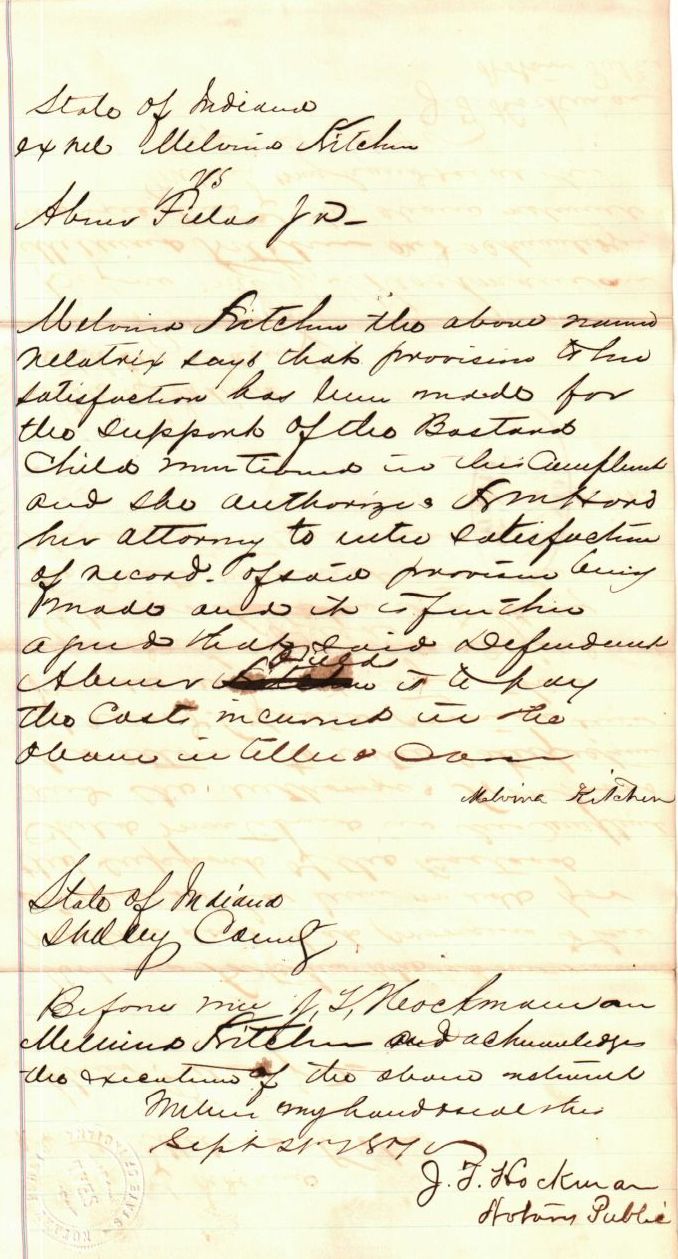 State of Indiana
ex rel Melvina Kitchen
vs
Abner Fields Jr
Melvina Kitchen the above named
relatrix says that provision to her
satisfaction has been made for
the support of the Bastard
Child mentioned in her Complaint
and she authorizes Hord
her attorney to enter satisfaction
of record. of said provision being
made and it is further
agreed that said Defendant
Fields
Abner is to pay
the Costs incurred in the
above intitled
Melvina Kitchen
State of Indiana
Shelby County
Before me J. F. Hockman
Melvina Kitchen and acknowledges
the execution of the above
Witness my hand & seal this
Sept 21
J. F. Hockman
Notary Public